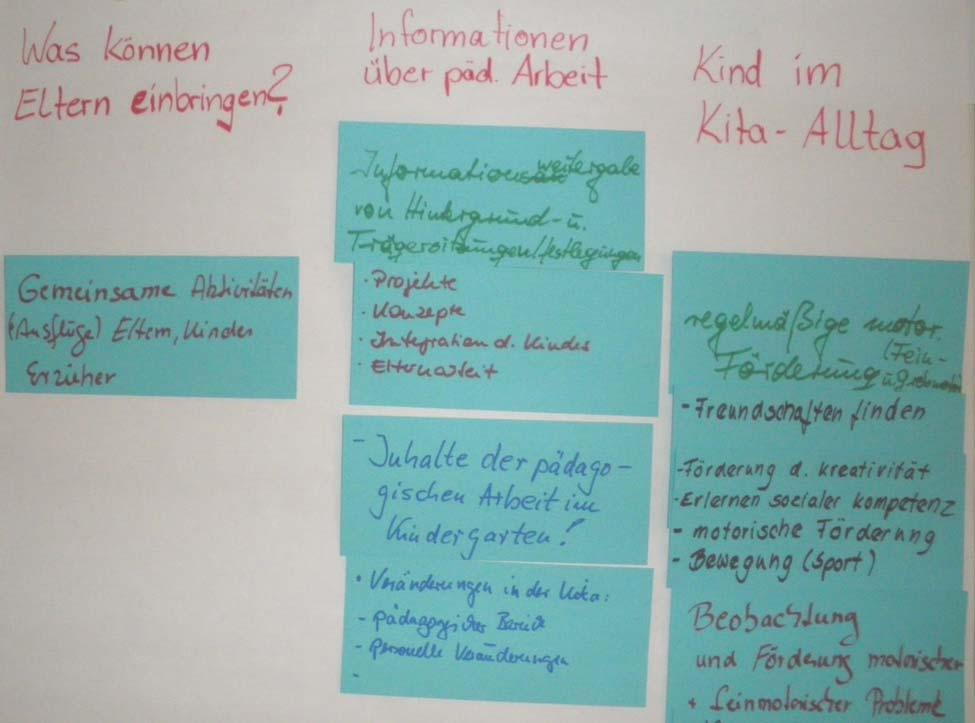 Was können
Eltern einbringen?
Gemeinsame Aktivitäten
(Ausflüge) Eltern, Kinder
Erzieher
Informationen
über päd. Arbeit
Informationsweitergabe
von Hintergrund- u.
Trägersitzungen/festlegungen
· Projekte
· Konzepte
· Integration d. Kindes
· Elternarbeit
- Inhalte der pädago-
gischen Arbeit im
Kindergarten!
• Veränderungen in der Kita:
- pädagogischer Bereich
- personelle Veränderungen
-
Kind im
Kita-Alltag
regelmäßige motor.
(Fein-
Förderung u. Grobmotorik
- Freundschaften finden
- Förderung d. kreativität
- Erlernen socialer kompetenz
- motorische Förderung
- Bewegung (Sport)
Beobachtung
und Förderung motorischer
+ feinmotorischer Probleme